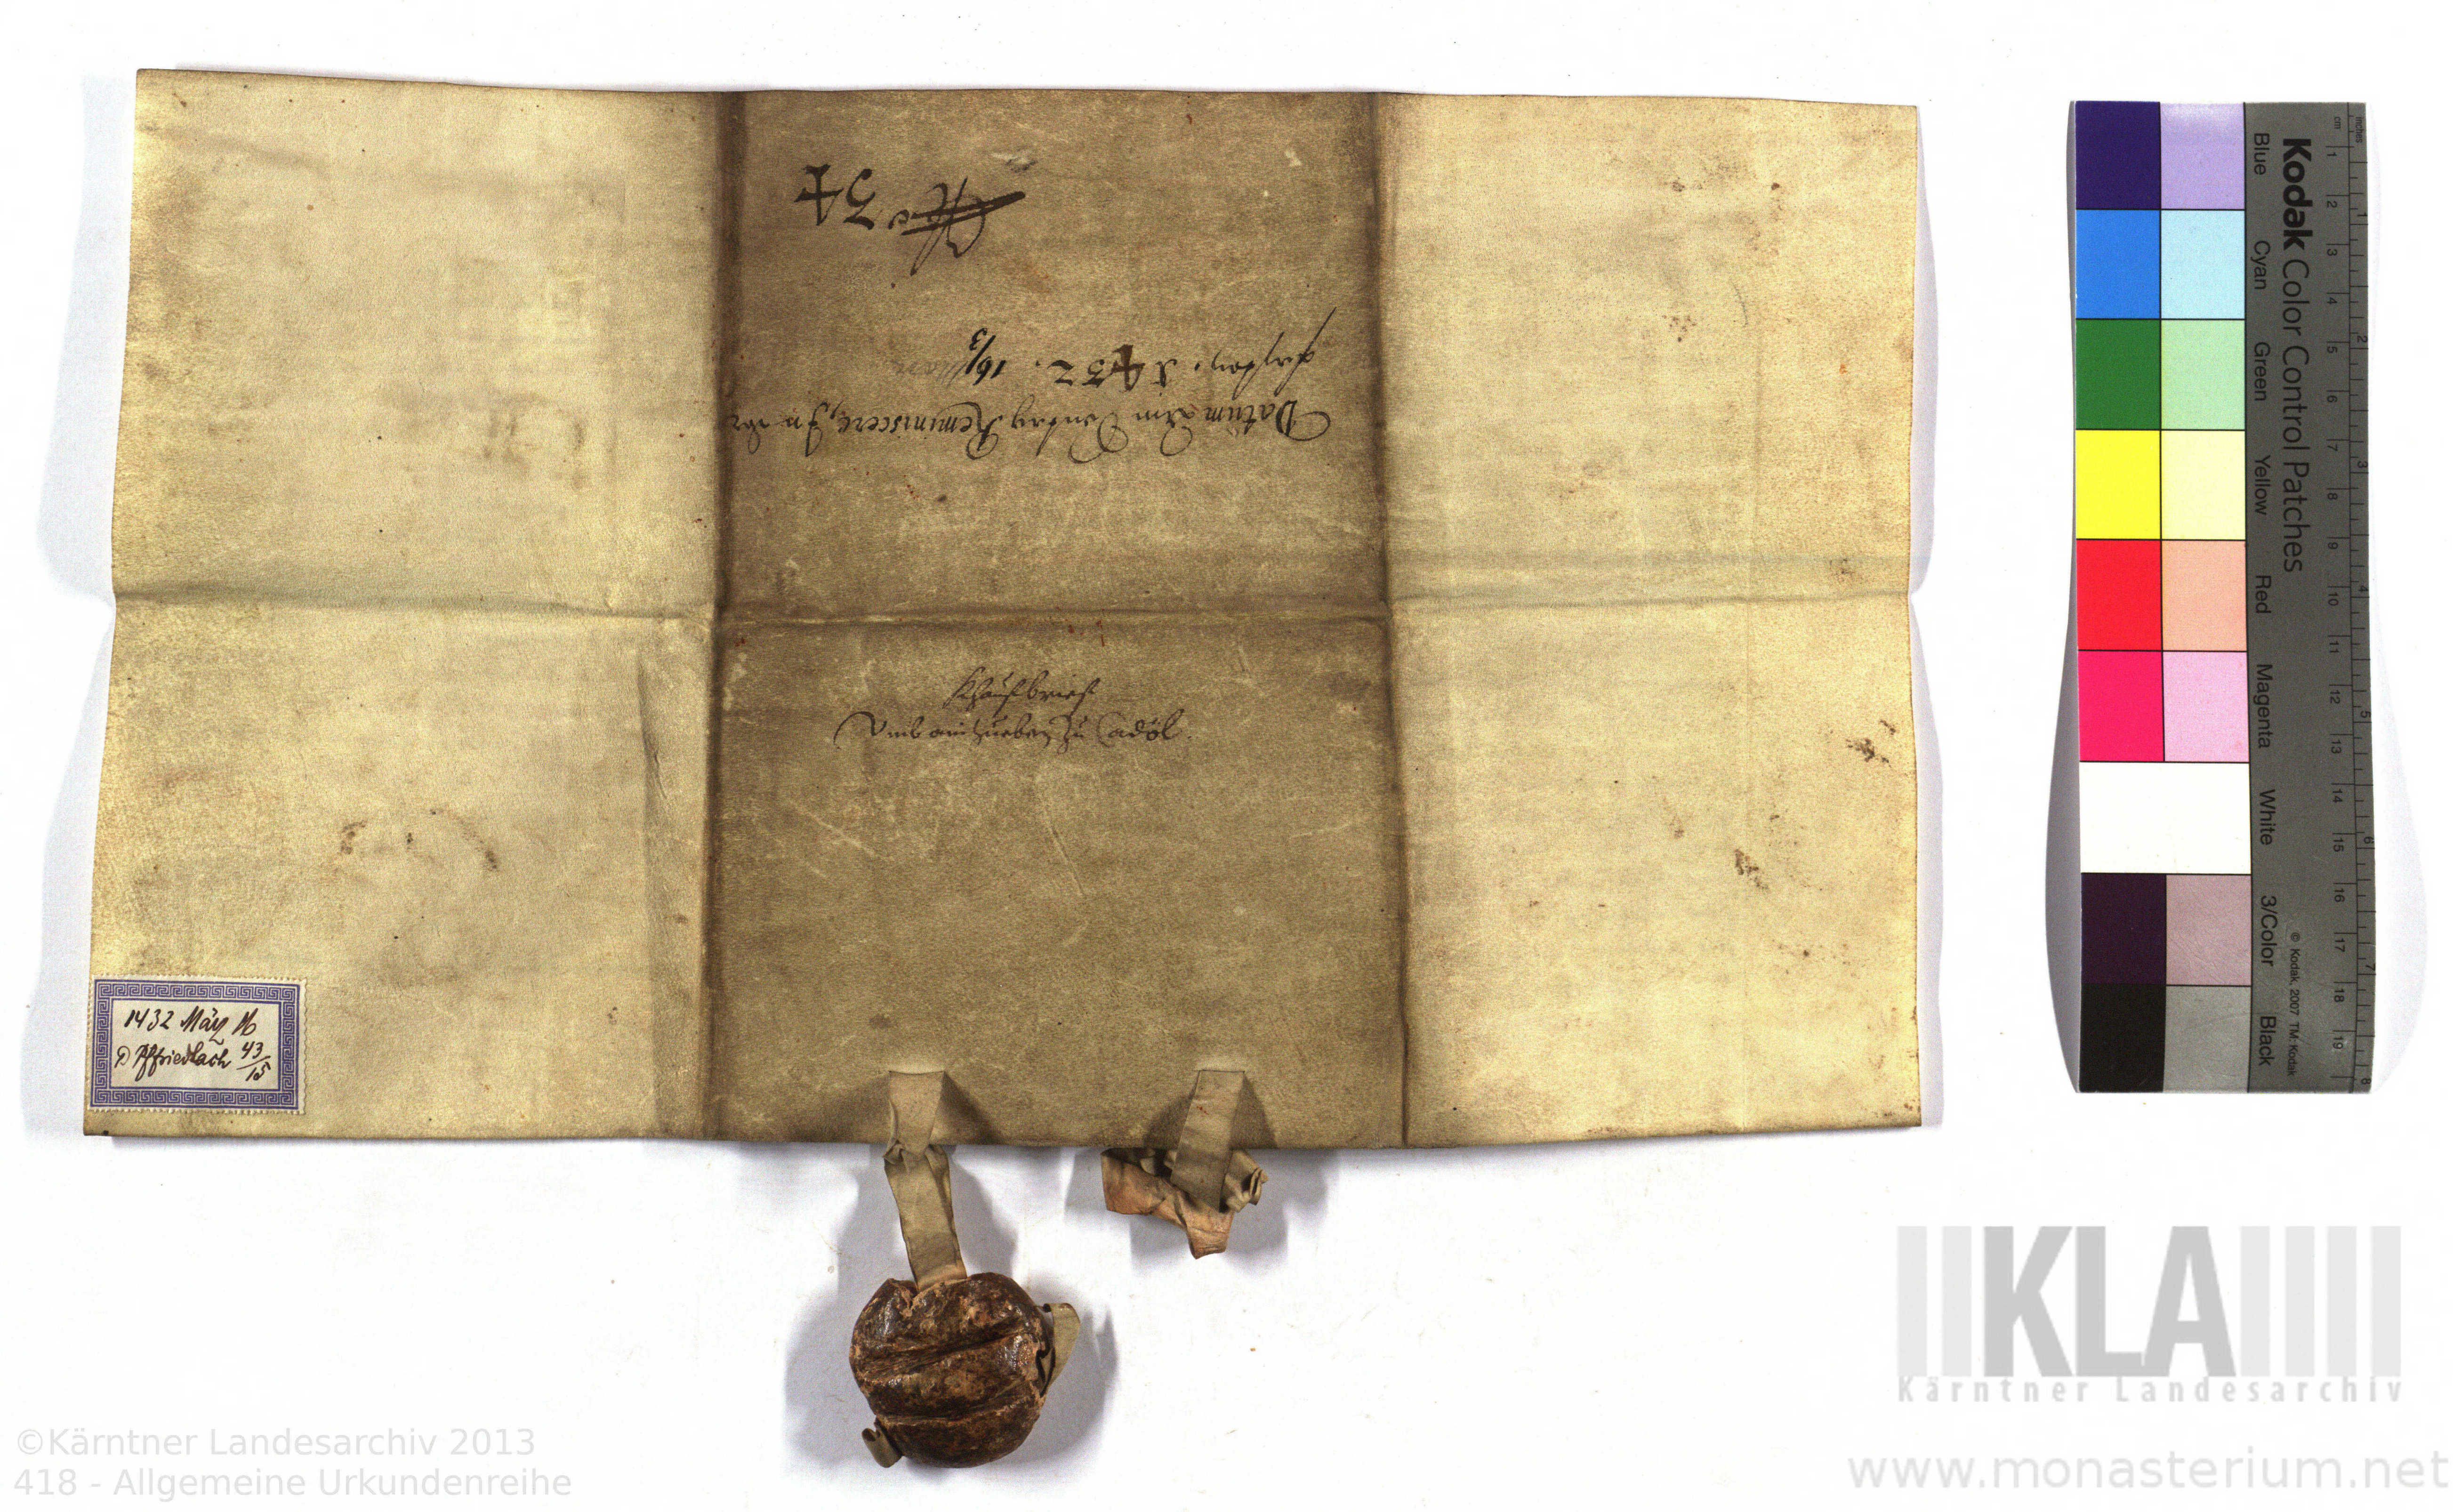 No 34
Datum Am Sontag Reminiscere, In der
fasten. 1432. 16/3
Khaufbrieff
Vmb ain hueben zu Cadöl.
1432 März 16
D Pffriedlach 43/15
Kodak Color Control Patches
Blue Cyan Green Yellow Red Magenta White 3/Color Black
© Kodak, 2007 TM: Kodak
inches 1 2 3 4 5 6 7 8
cm 1 2 3 4 5 6 7 8 9 10 11 12 13 14 15 16 17 18 19
KLA
Kärntner Landesarchiv
©Kärntner Landesarchiv 2013
418 - Allgemeine Urkundenreihe
www.monasterium.net